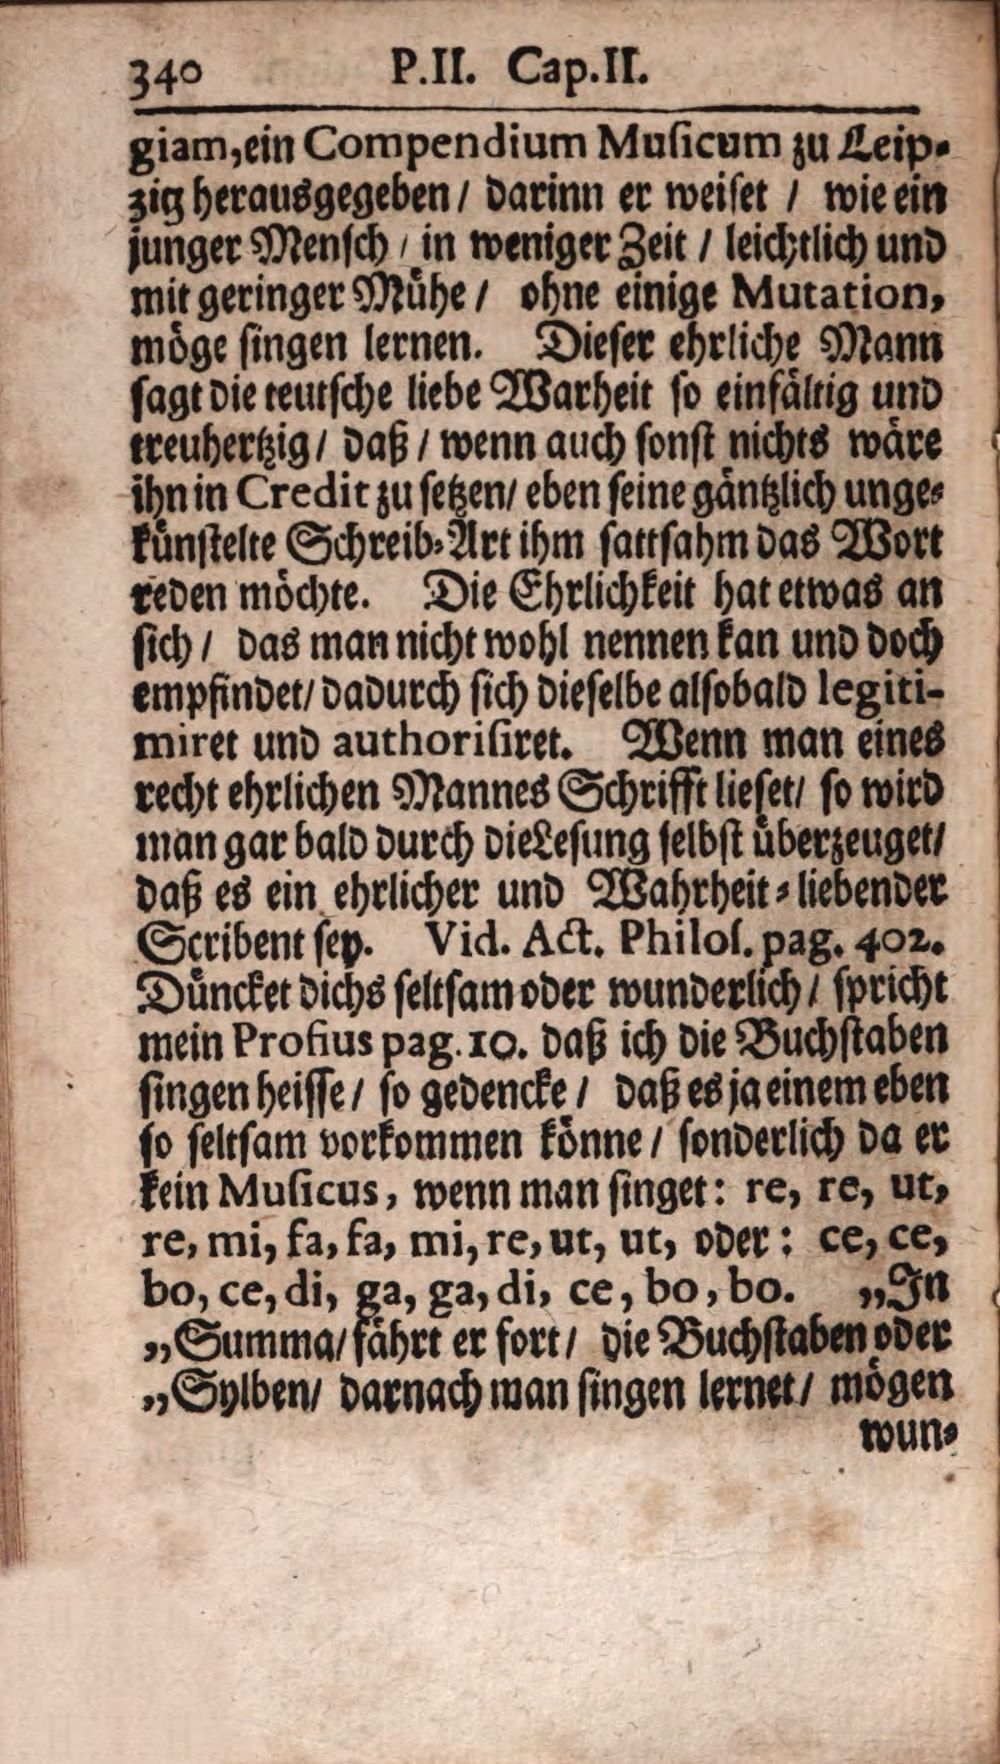 340 P.II. Cap.II.
giam, ein Compendium Muſicum zu Leip-
zig herausgegeben / darinn er weiſet / wie ein
junger Menſch / in weniger Zeit / leichtlich und
mit geringer Mühe / ohne einige Mutation,
möge ſingen lernen. Dieſer ehrliche Mann
ſagt die teutſche liebe Warheit ſo einfältig und
treuhertzig / daß / wenn auch ſonſt nichts wäre
ihn in Credit zu ſetzen / eben ſeine gäntzlich unge-
künſtelte Schreib-Art ihm ſattſahm das Wort
reden möchte. Die Ehrlichkeit hat etwas an
ſich / das man nicht wohl nennen kan und doch
empfindet / dadurch ſich dieſelbe alſobald legiti-
miret und authoriſiret. Wenn man eines
recht ehrlichen Mannes Schrifft lieſet / ſo wird
man gar bald durch die Leſung ſelbſt überzeuget /
daß es ein ehrlicher und Wahrheit-liebender
Scribent ſey. Vid. Act. Philoſ. pag. 402.
Düncket dichs ſeltſam oder wunderlich / ſpricht
mein Profius pag. 10. daß ich die Buchſtaben
ſingen heiſſe / ſo gedencke / daß es ja einem eben
ſo ſeltſam vorkommen könne / ſonderlich da er
kein Muſicus, wenn man ſinget: re, re, ut,
re, mi, fa, fa, mi, re, ut, ut, oder: ce, ce,
bo, ce, di, ga, ga, di, ce, bo, bo. „In
„Summa / fährt er fort / die Buchſtaben oder
„Sylben / darnach man ſingen lernet / mögen
wun-